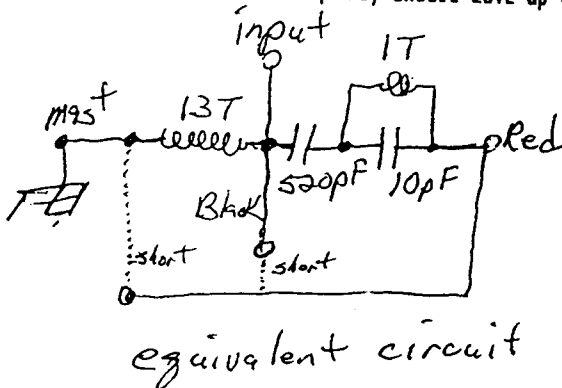 input
1T
mast
13T
Red
520pF
10pF
Black
short
short
equivalent circuit